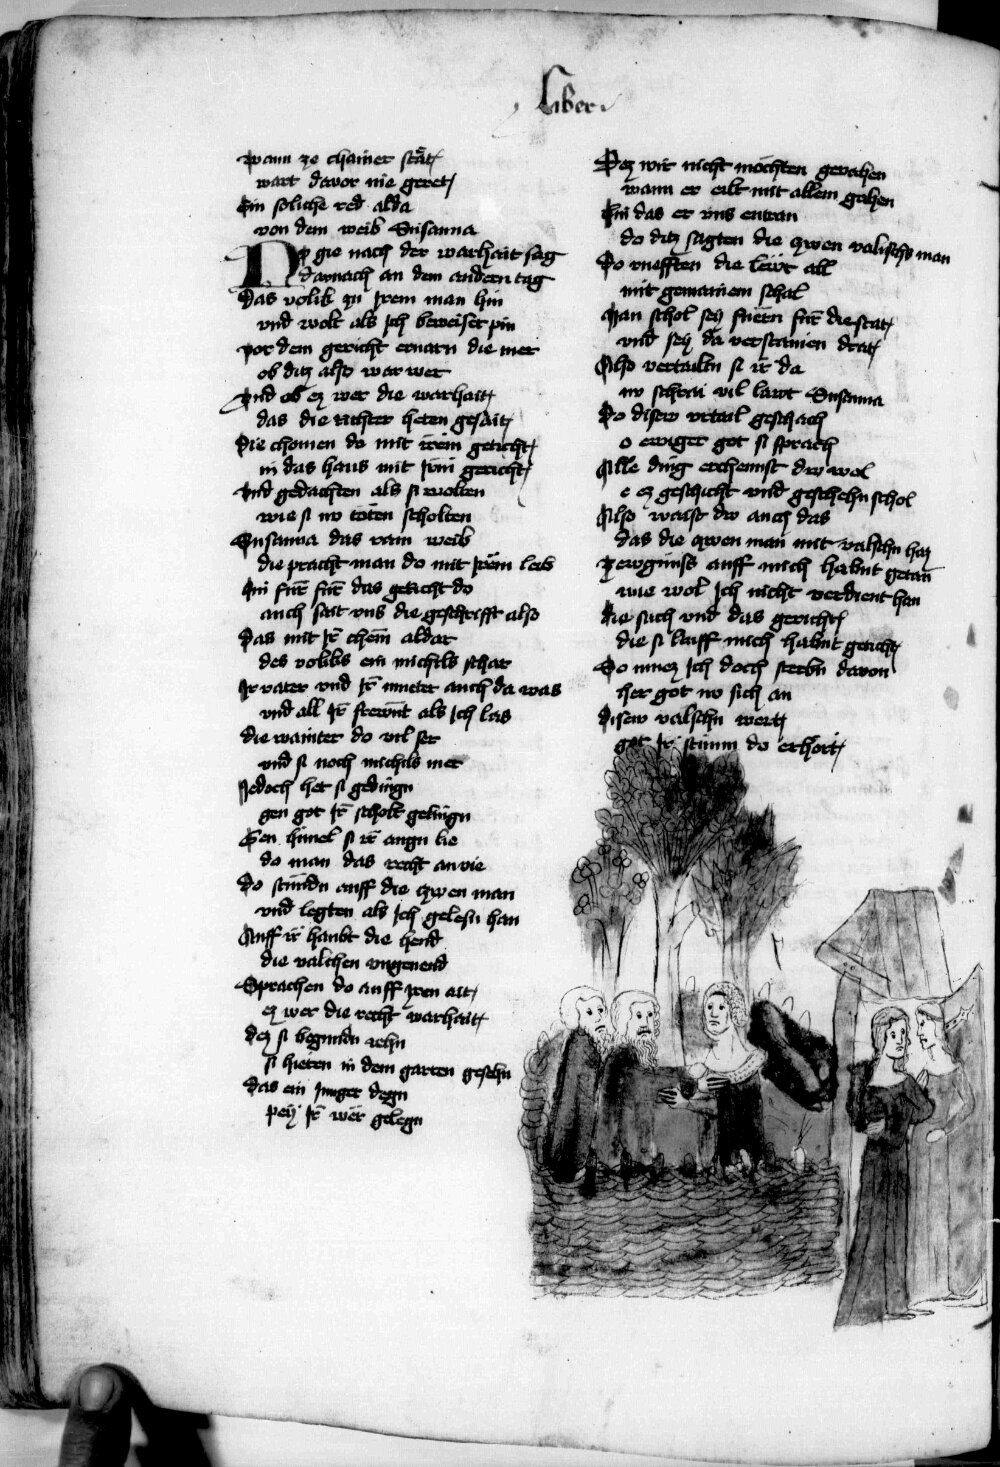 Liber
Wann ze chainer stät
wart davor nie geret
Ein soliche red alda
von dem weib Susanna
No gie nach der warhait sag
darnach an dem andern tag
Das volik zu irem man hin
und wolt als ich beweiset pin
vor dem gericht ervarn die mer
ob ditz also war wer
Und ob ez wer die warhait
das die richter heten gesait
Die chomen do mit irem geticht
in das haus mit irm gericht
Und gedachten als si wolten
wie si nv toten scholten
Susanna das rain weib
die pracht man do mit irem leib
Hin fur fur das gericht do
auch sait uns die geschrifft also
Das mit ir chem aldar
des voliks ein michils schar
Ir vater und ir mueter auch da was
und all ir frewnt als ich las
die wainter do vil ser
und si noch michils mer
Jedoch het si gedingn
gen got ir scholt gelingn
Gen himel si ir augn lie
do man das recht an vie
do stundn auff die zwen man
und legten als ich gelesn han
Auff ir haubt die hend
die valchen ungenend
Sprachen do auff iren ait
ez wer die recht warhait
dez si begundn iehn
si hieten in dem garten gesehn
das ein junger degn
pey ir wer gelegn
Dez wir nicht mochten gevahen
wann er eilt mit allem gahen
Hin das er uns entran
do ditz sagten die zwen valischs man
Do ruefften die lewt all
mit gemainem schal
Man schol sey fuern fur die stat
und sey da verstainen drat
Also vertailtn si ir da
nv schrai vil lawt Susanna
Do disew urtail geschach
o ewiger got si sprach
Alle ding erchennst dw wol
e ez geschicht und geschehn schol
Also waist dw auch das
das die zwen man mit valschn haz
Zewgnuss auff mich habnt getan
wie wol ich nicht verdient han
die sach und das gericht
die si lauff mich habnt geticht
So muez ich doch sterbn davon
her got nv sich an
disew valschn wort
got ir stimm do erhort